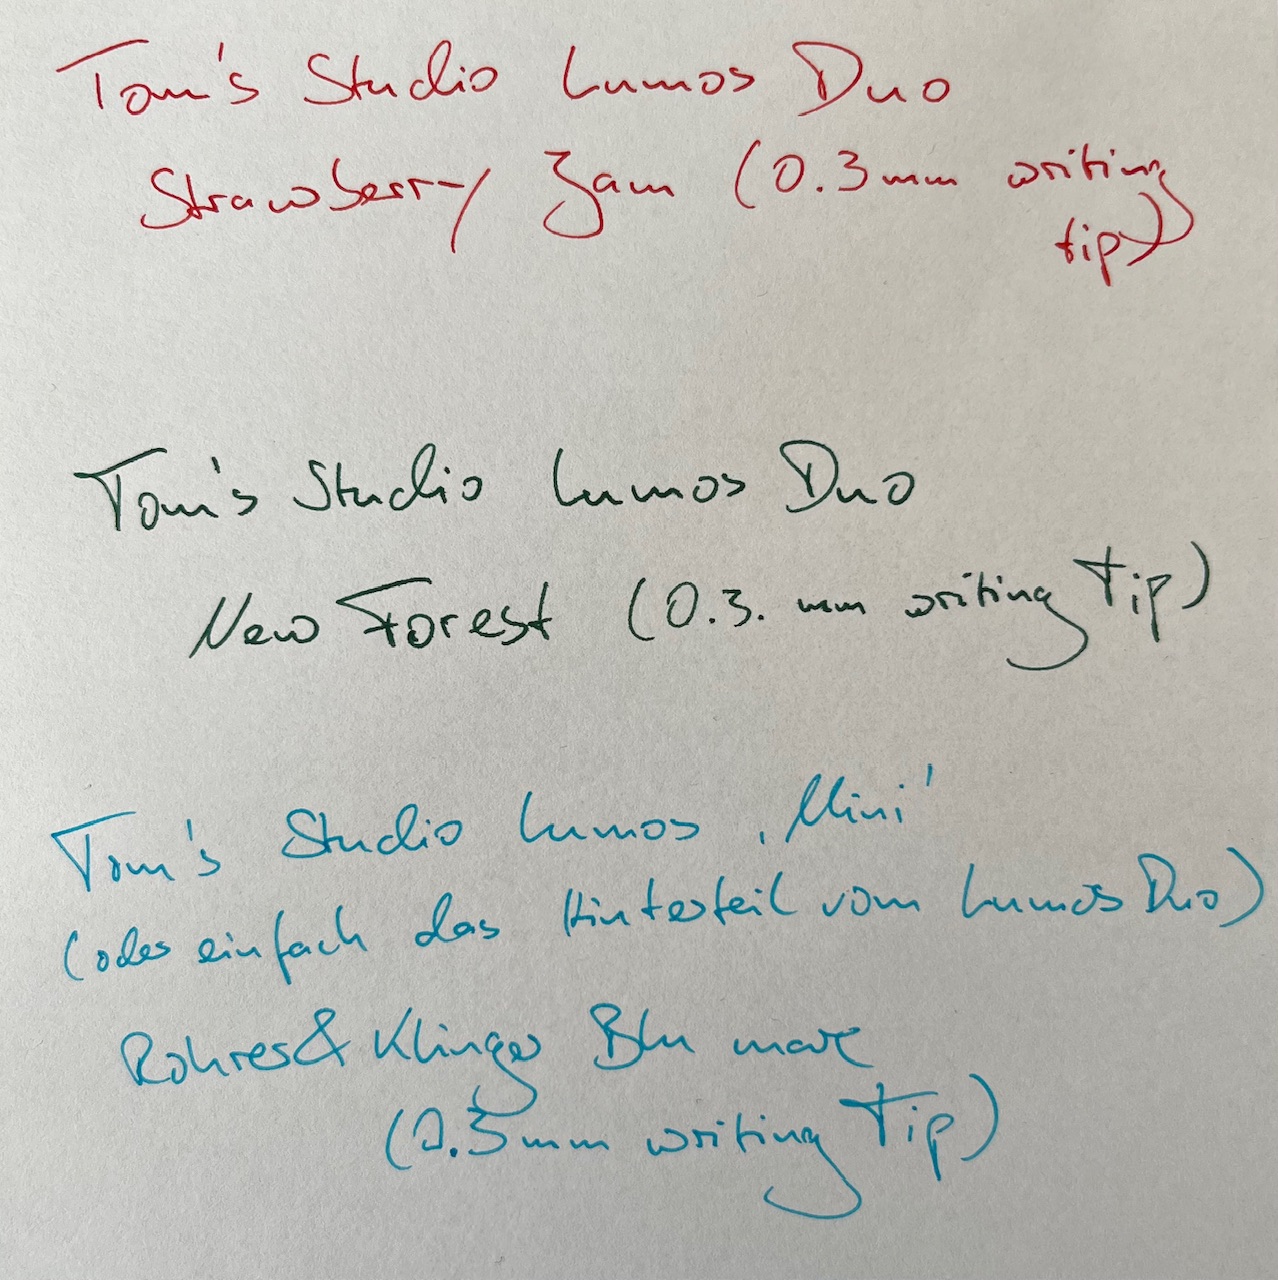 Tom's Studio Lumos Duo
Strawberry Jam (0.3mm writing
tip)
Tom's Studio Lumos Duo
New Forest (0.3. mm writing Tip)
Tom's Studio Lumos ‚Mini'
(oder einfach das Hinterteil vom Lumos Duo)
Rohrer & Klinger Blu mare
(0.3mm writing Tip)